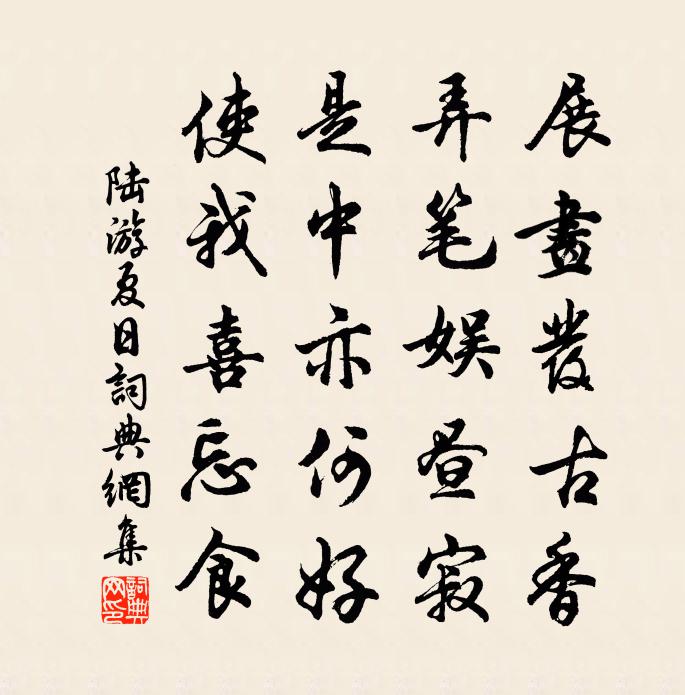 展畫發古香
弄笔娛昼寂
是中亦何好
使我喜忘食
陆游夏日詞典網集
詞典网印